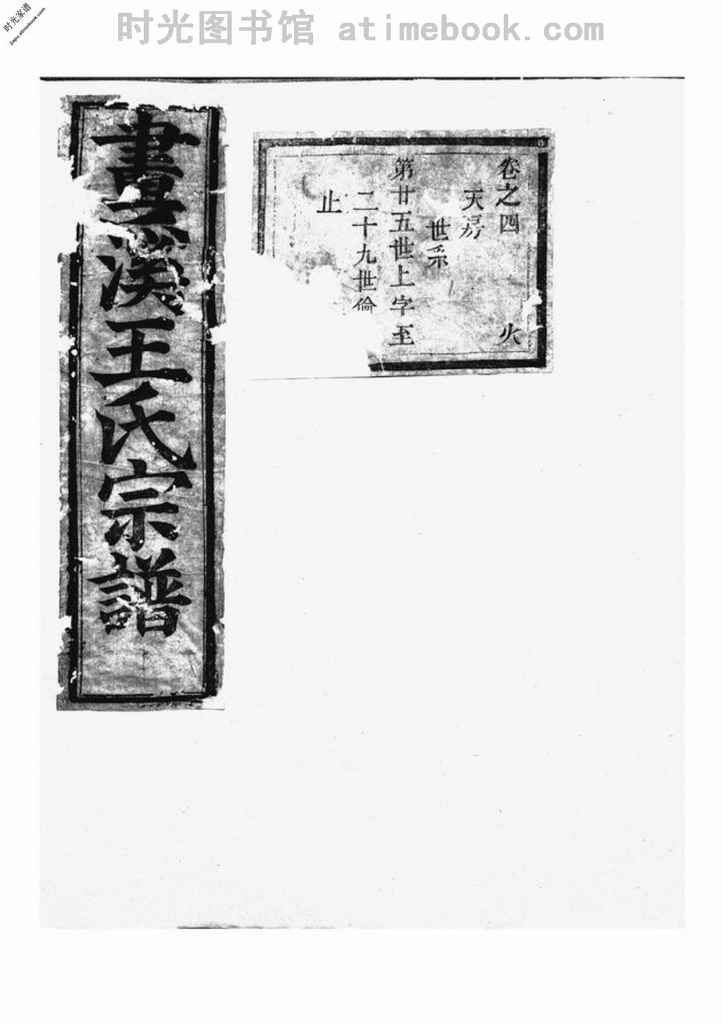 时光家谱
jiapu.atimebook.com
时光图书馆 atimebook.com
卷之四 火
天房
世系
第廿五世上字至
二十九世倫
止
畫溪王氏宗譜